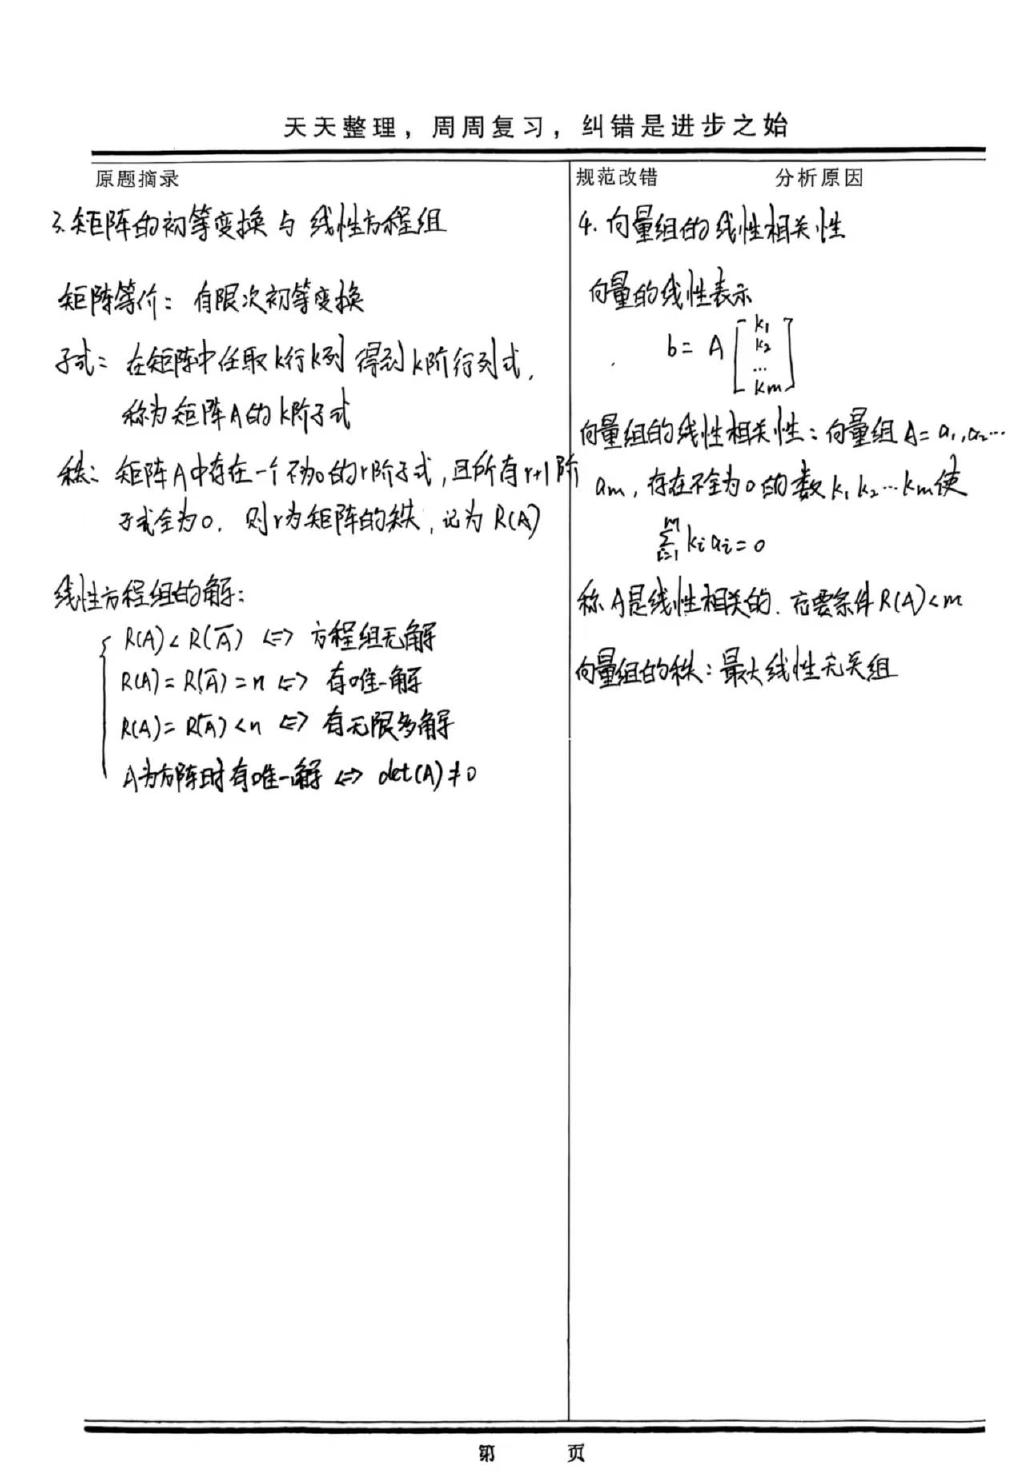 天天整理，周周复习，纠错是进步之始
原题摘录
3.矩阵的初等变换与线性方程组
矩阵等价：有限次初等变换
子式：在矩阵中任取k行k列得到k阶行列式，
称为矩阵A的k阶子式
秩：矩阵A中存在一个不为0的r阶子式，且所有r+1阶
子式全为0，则r为矩阵的秩，记为R(A)
线性方程组的解：
R(A)<R(Ā) <=> 方程组无解
R(A)=R(Ā)=n <=> 有唯一解
R(A)=R(Ā)<n <=> 有无限多解
A为方阵时有唯一解 <=> det(A)≠0
规范改错 分析原因
4.向量组的线性相关性
向量的线性表示
b=A[k₁
k₂
...
km]
向量组的线性相关性：向量组A=a₁,a₂...
am，存在不全为0的数k₁k₂...km使
∑ᵢ₌₁ᵐ kᵢaᵢ=0
称A是线性相关的.充要条件R(A)<m
向量组的秩：最大线性无关组
第 页